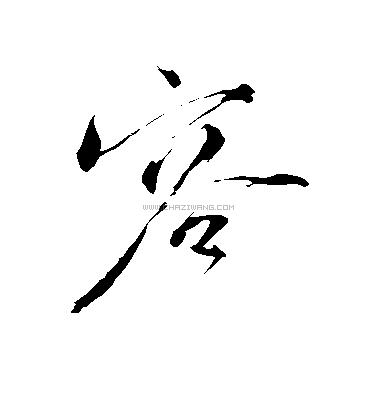 客
WWW.CHAZIWANG.COM